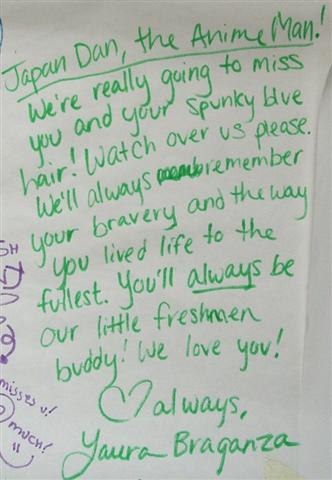 Japan Dan, the Anime Man!
We're really going to miss
you and your spunky blue
hair! Watch over us please.
We'll always remember
your bravery and the way
you lived life to the
fullest. You'll always be
our little freshmen
buddy! We love you!
♡ always,
Yaura Braganza
misses u!
much!